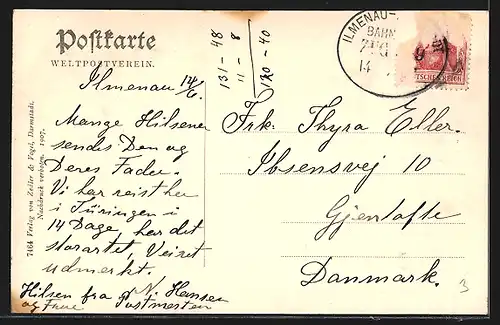 Postkarte
WELTPOSTVEREIN.
131-48
11-8
120-40
ILMENAU-
BAHN
ZUG
14
DEUTSCHES REICH
Ilmenau 14/6.
Mange Hilsener
sendes Dem og
Deres Fader.
Vi har reist her
i Türingen i
14 Dage, har det
storartet, Veiret
udmerket.
Hilsen fra N. Hansen
og Frue Postmester
Frk: Thyra Eller.
Ibsensvej 10
Gjentofte
Danmark.
3
7464 Verlag von Zedler & Vogel, Darmstadt.
Nachdruck verboten. 1907.